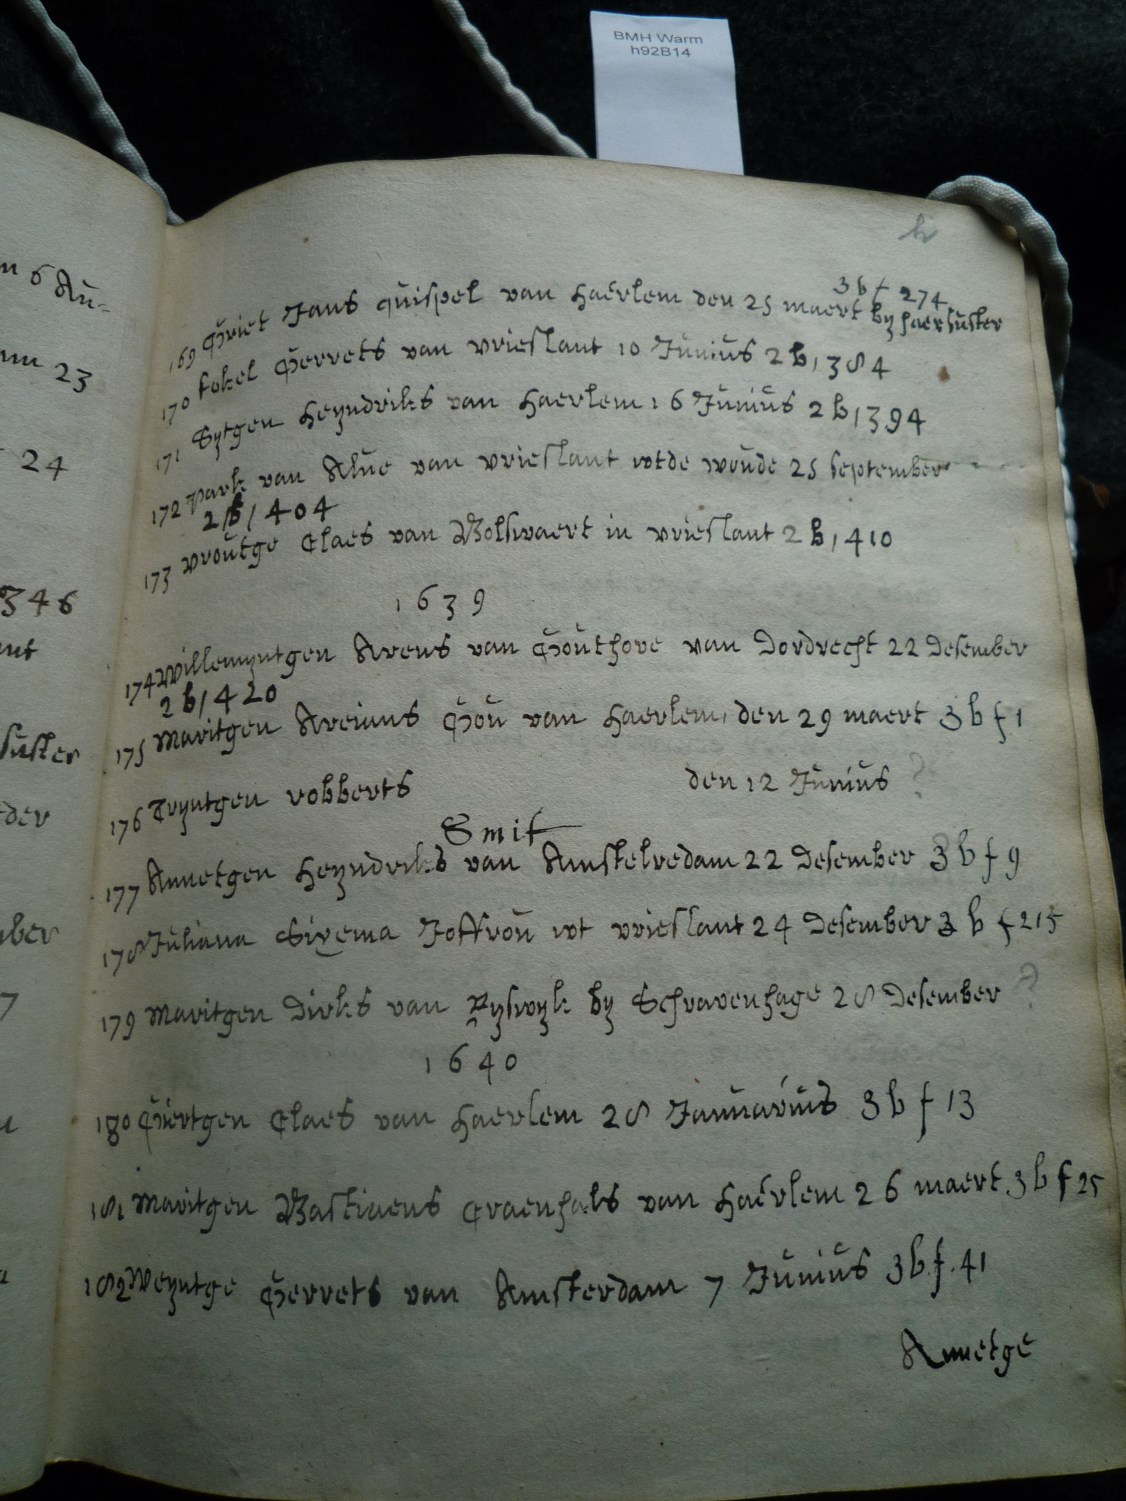 BMH Warm
h92B14
n 6 Au-
nn 23
24
346
ant
suster
eder
ber
7
3 b f 274
169 Griet Jans quispel van haerlem den 25 maert by haer suster
170 fokel Gerrets van vrieslant 10 Junius 2 b, 384
171 Sytgen heyndriks van haerlem 16 Junius 2 b, 394
172 van Alue van vrieslant wtde woude 25 september
2 b, 404
173 vroutge Claes van Bolswaert in vrieslant 2 b, 410
1639
174 willemyntgen Arens van Gouthove van Dordrecht 22 Desember
2 b, 420
175 Maritgen Areians Gou van haerlem, den 29 maert 3 b f 1
176 Tryntgen robberts den 12 Junius ?
Smit
177 Annetgen heyndriks van Amstelredam 22 Desember 3 b f 9
178 Juliana Sixema Joffrou wt vrieslant 24 Desember 3 b f 215
179 Maritgen Dirks van Ryswyk by Schravenhage 28 Desember ?
1640
180 Giertgen Claes van haerlem 28 Januarius 3 b f 13
181 Maritgen Bastiaens Craenhals van haerlem 26 maert 3 b f 25
182 Weyntge Gerrets van Amsterdam 7 Junius 3 b f. 41
Annetge